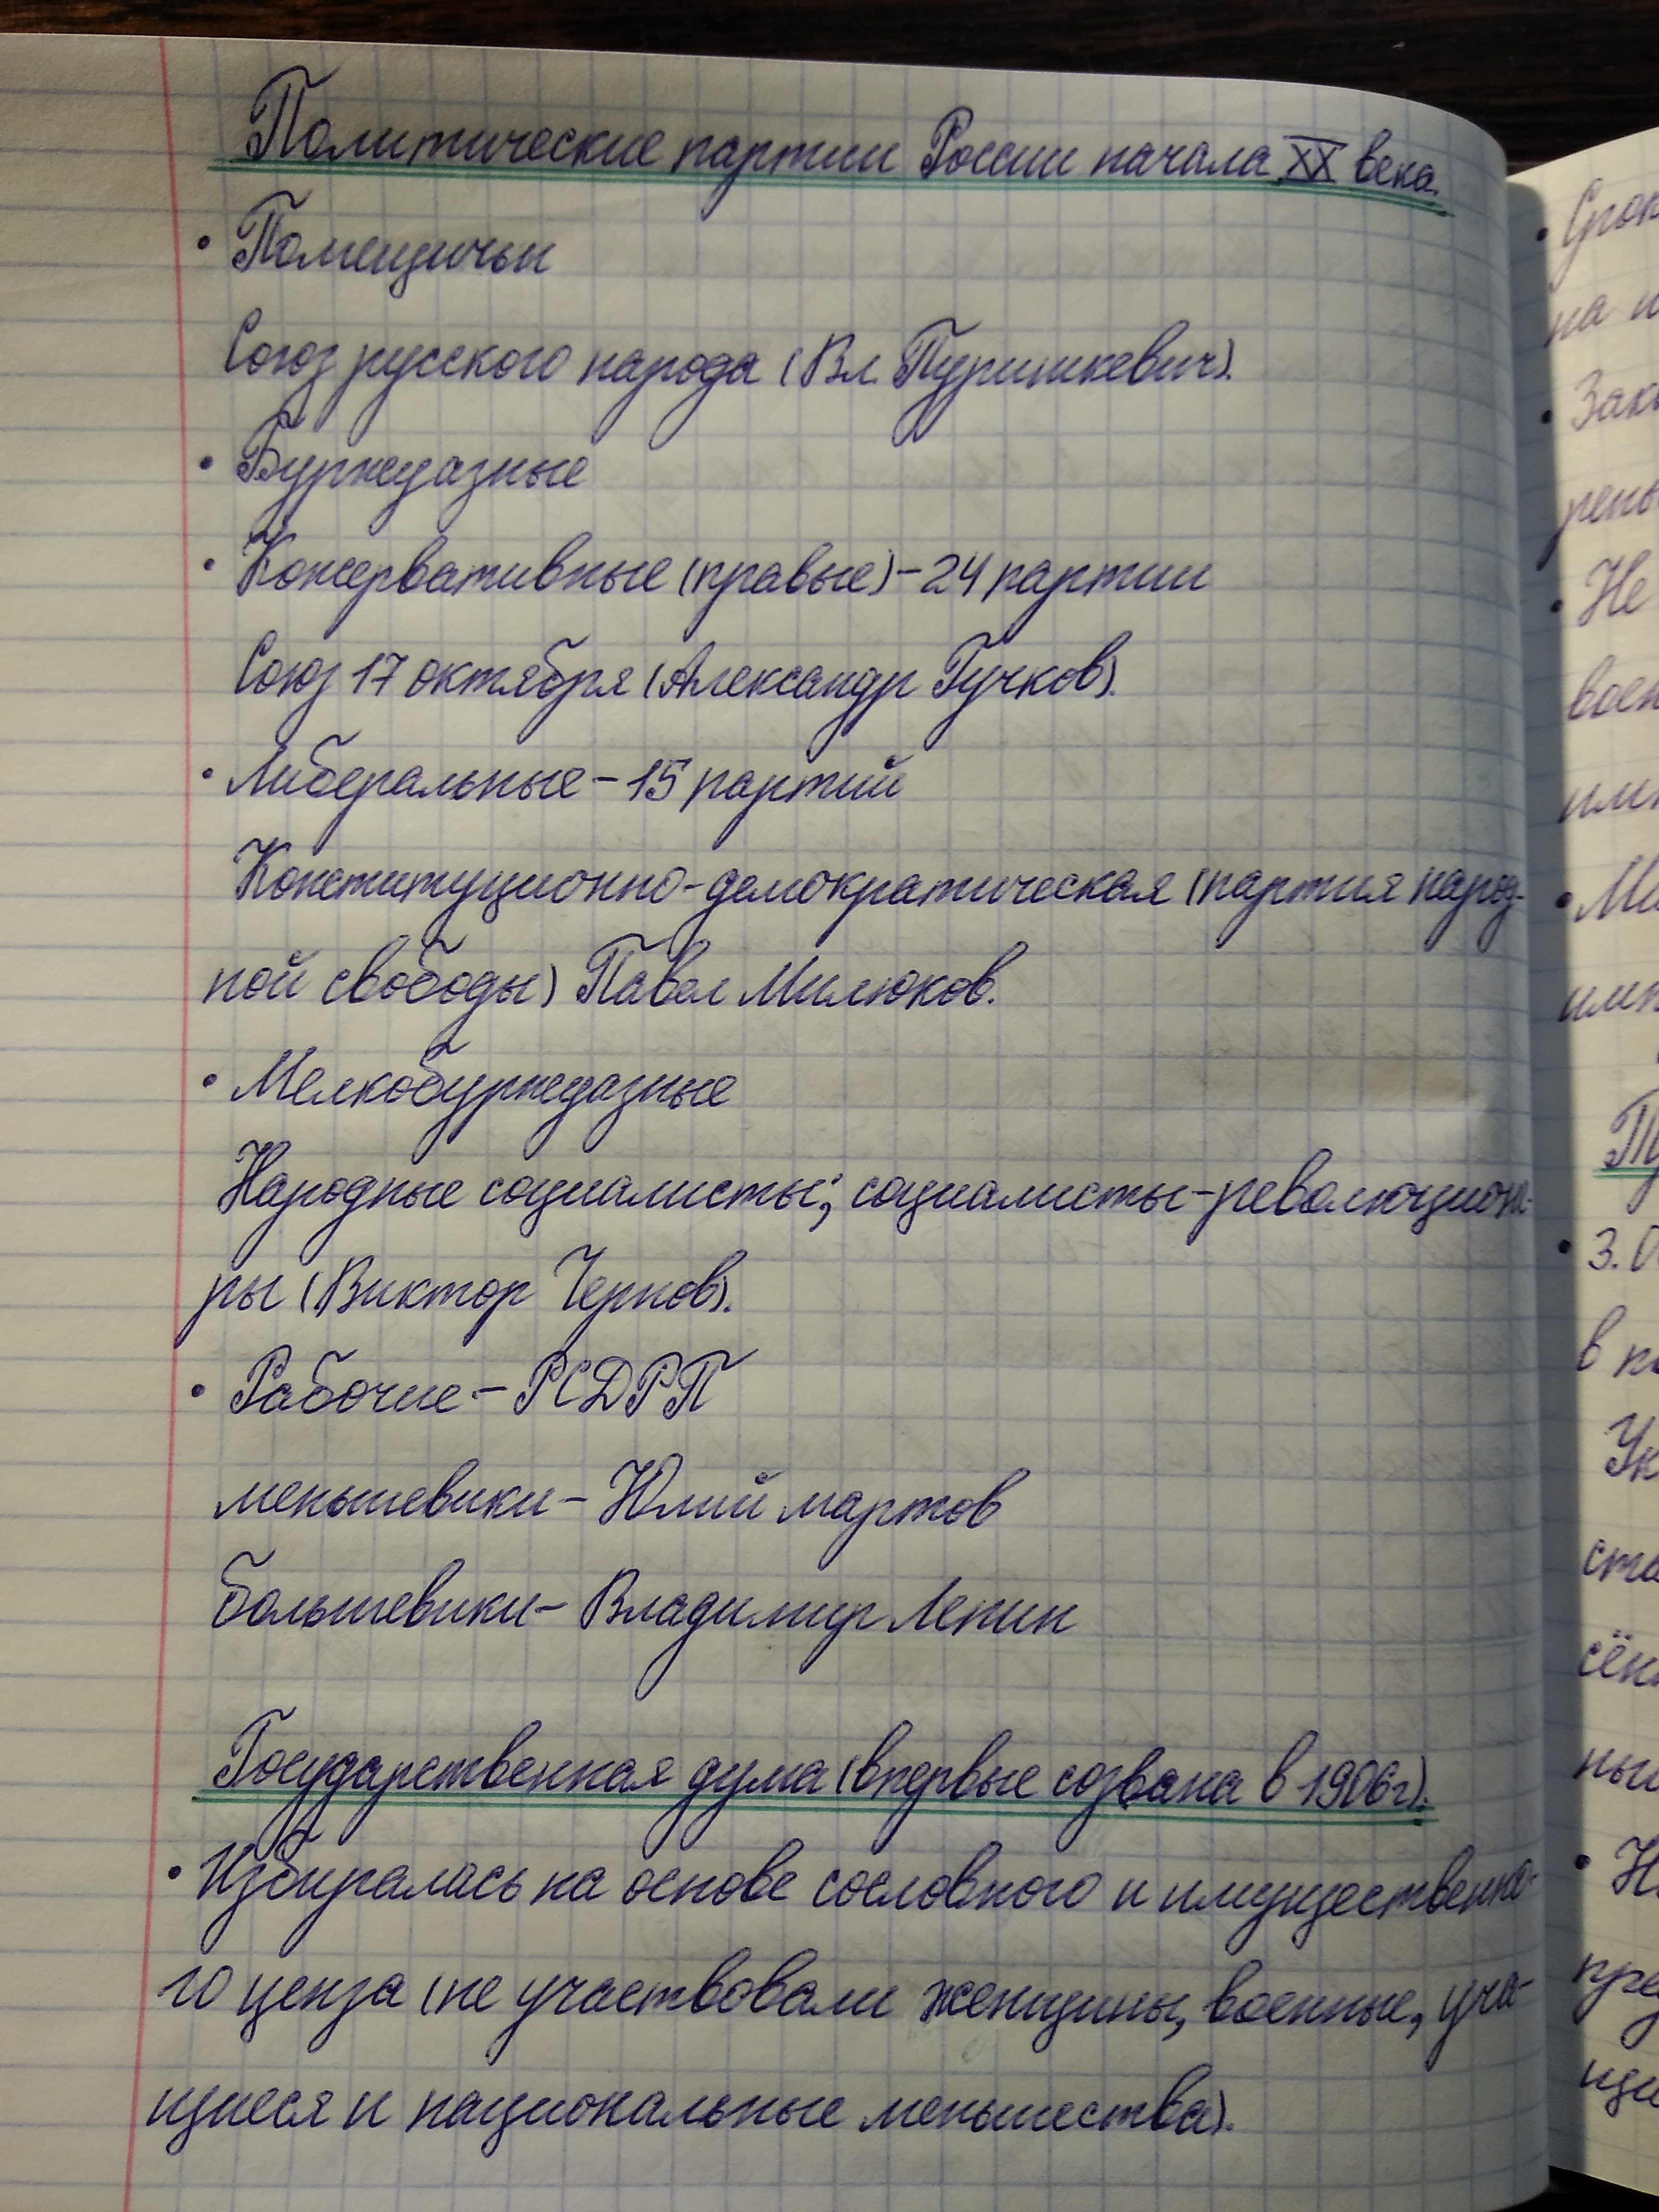 Политические партии России начала XX века.
• Помещичьи
Союз русского народа (Вл. Пуришкевич).
• Буржуазные
• Консервативные (правые) – 24 партии
Союз 17 октября (Александр Гучков).
• Либеральные – 15 партий
Конституционно-демократическая (партия народ-
ной свободы) Павел Милюков.
• Мелкобуржуазные
Народные социалисты; социалисты-революционе-
ры (Виктор Чернов).
• Рабочие – РСДРП
меньшевики – Юлий мартов
большевики – Владимир Ленин
Государственная дума (впервые созвана в 1906г).
• Избиралась на основе сословного и имущественно-
го ценза (не участвовали женщины, военные, уча-
щиеся и национальные меньшества).
• 
на
• 
• Не
• 
• 3.
в
•